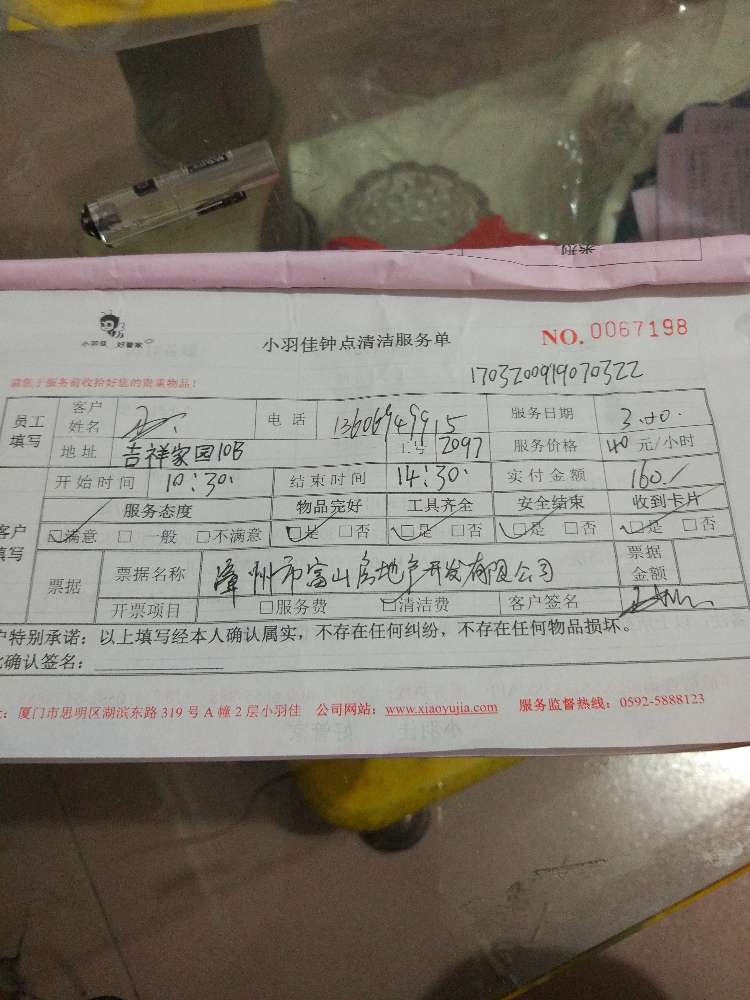 类型
小羽佳 好管家
小羽佳钟点清洁服务单
NO. 0067198
需您于服务前收拾好您的贵重物品!
1703200919070322
员工填写 客户姓名 电话 13606949915 服务日期 3.20.
地址 吉祥家园10B 工号 2097 服务价格 40 元/小时
开始时间 10:30. 结束时间 14:30. 实付金额 160./
客户填写 服务态度 物品完好 工具齐全 安全结束 收到卡片
☑满意 □ 一般 □不满意 ☑是 □否 ☑是 □否 ☑是 □否 ☑是 □否
票据 票据名称 漳州市富山房地产开发有限公司 票据金额
开票项目 □服务费 ☑清洁费 客户签名
户特别承诺：以上填写经本人确认属实，不存在任何纠纷，不存在任何物品损坏。
此确认签名：
厦门市思明区湖滨东路 319 号 A 幢 2 层小羽佳 公司网站：www.xiaoyujia.com 服务监督热线：0592-5888123